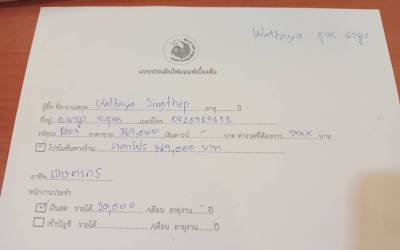 Wattaya อุดร นายูง
แบบประเมินไฟแนนท์เบื้องต้น
ผู้ซื้อ ชื่อ-นามสกุล Wattaya Singthep อายุ ปี
ที่อยู่ อ.นายูง จ.อุดร เบอร์โทร
รหัสรถ R003 ราคาขาย 369,000 เงินดาวน์ - บาท ค่างวดที่ต้องการ 7xxx บาท
โปรโมชั่นทางร้าน ราคาโปร 369,000 บาท
อาชีพ เกษตรกร
พนักงานประจำ
เงินสด รายได้ 20,000 /เดือน อายุงาน - ปี
เข้าบัญชี รายได้ /เดือน อายุงาน ปี